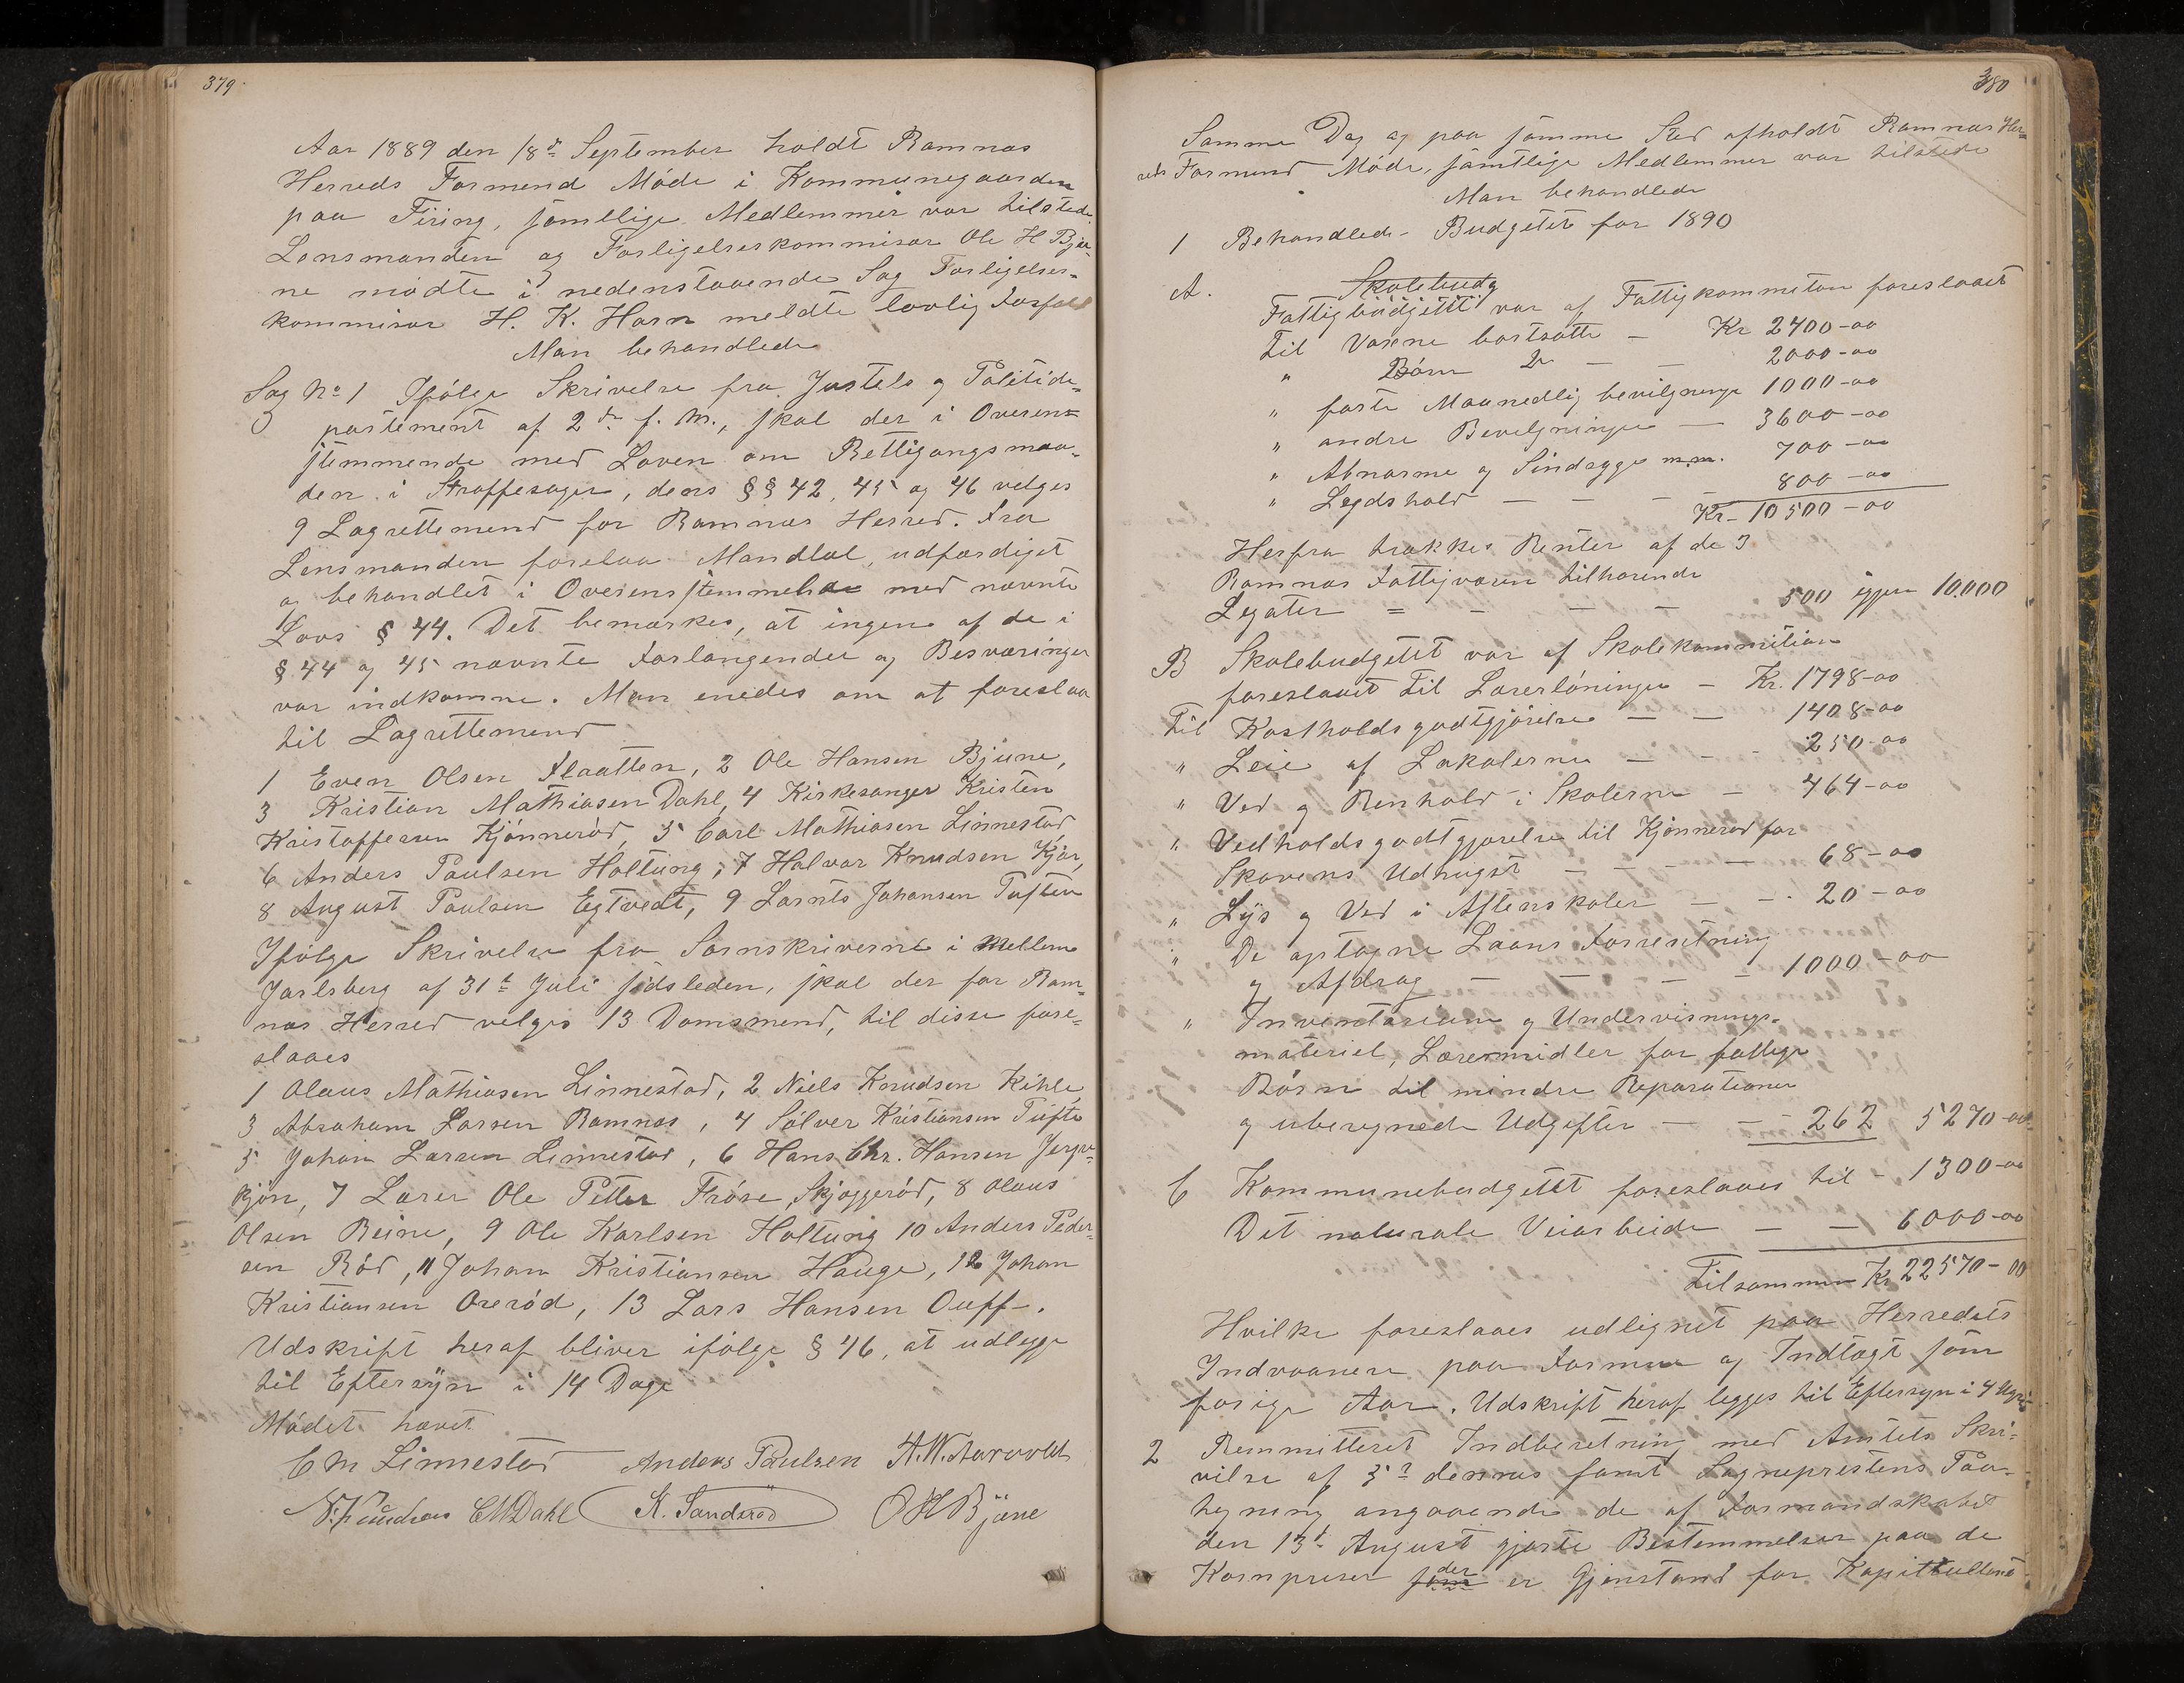 379
Aar 1889 den 18de September holdt Ramnæs
Herreds Formend Møde i Kommunegaarden
paa Firing, samtlige Medlemmer var tilstede.
Lensmanden og Forligelseskommisær Ole H Bju-
ne mødte i nedenstaaende Sag Forligelses-
kommisær H. K. Horn meldte lovlig Forfald
Man behandlede
Sag No 1 Ifølge Skrivelse fra Justets og Politide-
partement af 2den f. M., skal der i Overens-
stemmende med Loven om Rettigangsmaa-
den i Straffesager, dens §§ 42, 45 og 46 velges
9 Lagrettemend for Ramnæs Herred. Fra
Lensmanden forelaa Mandtal, udfærdiget
og behandlet i Overensstemmelse med nævnte
Lovs § 44. Det bemærkes, at ingen af de i
§ 44 og 45 nævnte Forlangender og Besværinger
var indkomne. Man enedes om at foreslaa
til Lagrettemend
1 Even Olsen Flaatten, 2 Ole Hansen Bjune,
3 Kristian Mathiasen Dahl, 4 Kirkesanger Kristen
Kristoffersen Kjønnerød, 5 Carl Mathiasen Linnestad
6 Anders Paulsen Holtung, 7 Halvor Knudsen Kjær,
8 August Paulsen Egtvedt, 9 Lornts Johansen Tuften
Ifølge Skrivelse fra Sornskriverne i Mellem
Jarlsberg af 31te Juli sidsleden, skal der for Ram-
næs Herred velges 13 Domsmend, til disse fore-
slaaes
1 Olaus Mathiasen Linnestad, 2 Niels Knudsen Kihle
3 Abraham Larsen Ramnæs, 4 Sølver Kristiansen Tufte
5 Johan Larsen Linnestad, 6 Hans Chr. Hansen Jerpe-
kjøn, 7 Lærer Ole Petter Frøse, Skjæggerød, 8 Olaus
Olsen Reine, 9 Ole Karlsen Holtung 10 Anders Peder-
sen Rød, 11 Johan Kristiansen Hauge, 12 Johan
Kristiansen Orerød, 13 Lars Hansen Ouff-.
Udskrift heraf bliver ifølge § 46, at udlegge
til Eftersyn i 14 Dage
Mødet hævet
C M Linnestad Anders Paulsen A. W. Aarvoldt
N. Knudsen C M Dahl K. Sanderød O H Bjune
380
Samme Dag og paa samme Sted afholdt Ramnæs Her-
reds Formend Møde, samtlige Medlemmer var tilstede
Man behandlede
1 Behandlede Budgetet for 1890
A. Skolebudg
Fattigbudgettet var af Fattigkommiton foreslaaet
til Voxne bortsatte - Kr 2400-00
" Børn Do - 2000-00
" faste Maanedlig bevilgninge 1000-00
" andre Bevilgninger - 3600-00
" Abnorme og Sindsyge m.m. 700-00
" Legdshold - - - - 800-00
Kr- 10500-00
Herfra trækkes Renter af de 3
Ramnæs Fattigvæsen tilhørende
Legater = - - - 500 igjen 10,000
B Skolebudgetet var af Skolekommition
foreslaaet til Lærerlønninger - Kr. 1798-00
Til Kostholdsgodtgjørelse - - 1408-00
" Leie af Lokalerne - - - 250-00
" Ved og Renhold i Skolerne - 464-00
" Vedholdsgodtgjørelse til Kjønnerød for
Skovens Udhugst - - - - 68-00
" Lys og Ved i Aftenskoler - - 20-00
" De optagne Laans Forrentning
og Afdrag - - - - 1000-00
" Inventarium og Undervisnings-
materiel, Læremidler for fattige
Børn til mindre Reparationer
og uberegnede Udgifter - - 262 5270-00
C Kommunebudgettet foreslaaes til - 1300-00
Det naturale Veiarbeide - - 6000-00
Tilsammen Kr 22570-00
Hvilke foreslaaes udlignet paa Herredets
Indvaanere paa Formue og Indtægt som
forige Aar. Udskrift heraf legges til Eftersyn i 4 Uger
2 Remmitteret Indberetning med Amtets Skri-
velse af 5te dennes samt Sogneprestens Paa-
tegning angaaende de af Formandskabet
den 13de August gjorte Bestemmelser paa de
Kornpriser som der er Gjenstand for Kapitteltaxt